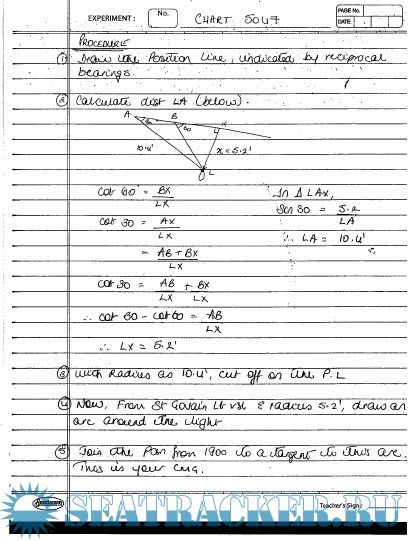 EXPERIMENT :
No.
CHART 5047
PAGE No.
DATE
PROCEDURE
① Draw the Position line, indicated by reciprocal
bearings.
② Calculate dist LA (below).
A
B
X
30
60
10.4'
x = 5.2'
L
cot 60 = BX
LX
In Δ LAX,
cot 30 = AX
LX
Sin 30 = 5.2
LA
= AB + BX
LX
∴ LA = 10.4'
cot 30 = AB + BX
LX LX
∴ cot 30 - cot 60 = AB
LX
∴ LX = 5.2'
③ With Radius as 10.4', cut off on the P.L
④ Now, From St Govain Lt vsl & radius 5.2', draw an
arc around the light
⑤ Join the Posn from 1900 to a tangent to this arc.
This is your CMG.
Teacher's Sign :
SEATRACKER.RU